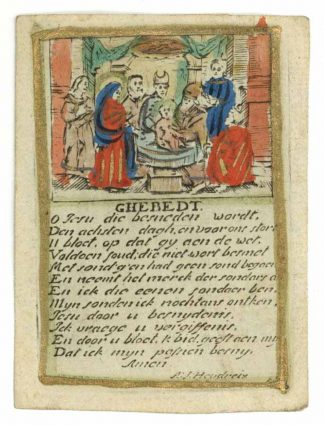 GHEBEDT.
O Jesu die besneden wordt,
Den achsten dagh, en voor ons stort
U bloet, op dat gy aen de wet
Voldoen soud, die niet wort besmet
Met sond'gren had geen sond begaen
En neemt het merck der sondaers
En ick die eenen sondaer ben,
Myn sonden ick nochtans ontken,
Jesu door u besnydenis,
Ick vraege u vergiffenis,
En door u bloet, ick bid, geeft aen my
Dat ick myn
Amen